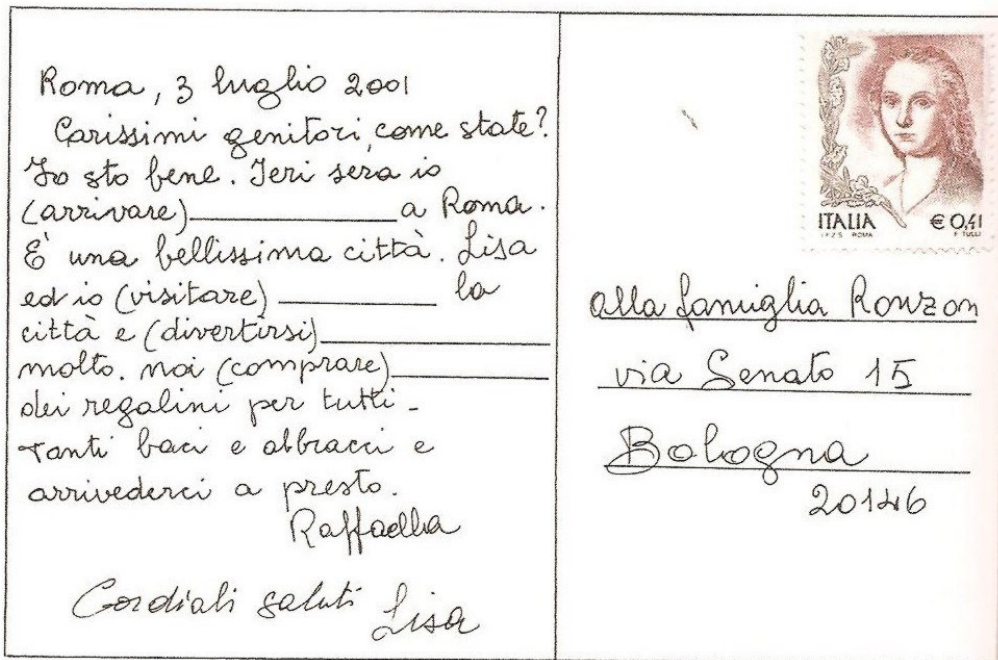 Roma, 3 luglio 2001
Carissimi genitori, come state?
Io sto bene. Ieri sera io
(arrivare)____________ a Roma.
È una bellissima città. Lisa
ed io (visitare) __________ la
città e (divertirsi)______________
molto. noi (comprare)__________
dei regalini per tutti -
Tanti baci e abbracci e
arrivederci a presto.
Raffaella
Cordiali saluti Lisa
ITALIA € 0,41
I.P.Z.S. ROMA F. TULLI
alla famiglia Ronzon
via Senato 15
Bologna
20146